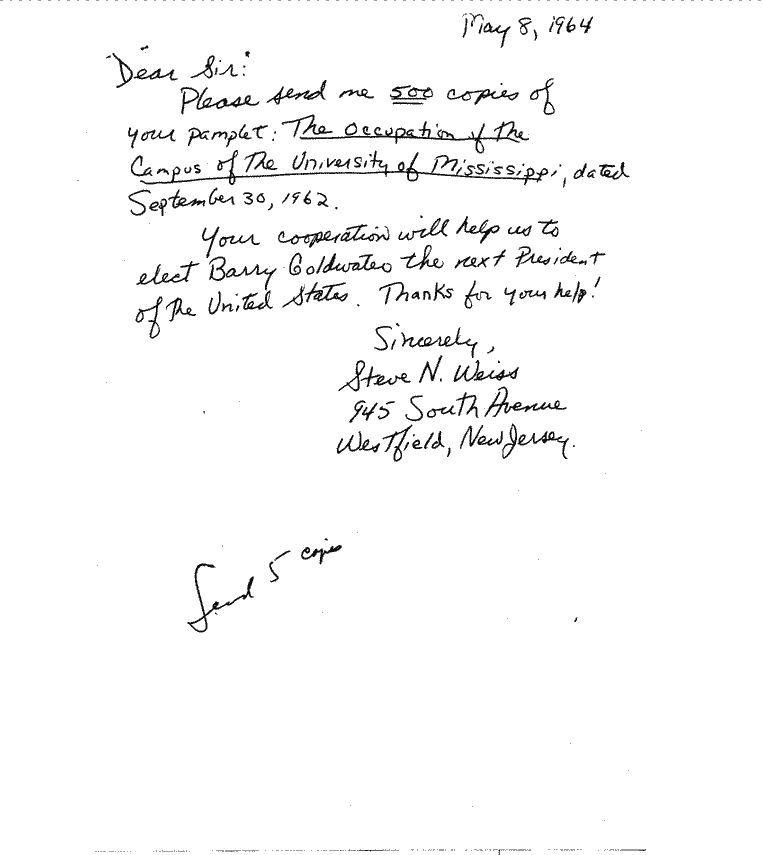 May 8, 1964
Dear Sir:
Please send me 500 copies of
your pamplet: The Occupation of the
Campus of The University of Mississippi, dated
September 30, 1962.
Your cooperation will help us to
elect Barry Goldwater the next President
of the United States. Thanks for your help!
Sincerely,
Steve N. Weiss
945 South Avenue
Westfield, New Jersey.
Send 5 copies